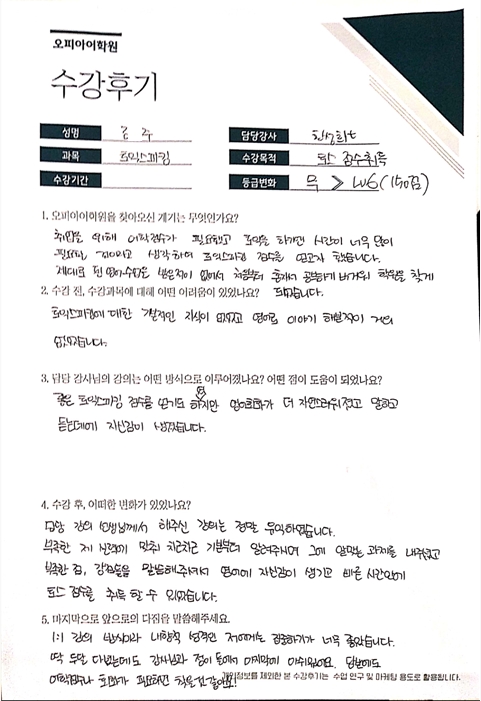 오피아이학원
수강후기
성명 김 주 담당강사
과목 토익스피킹 수강목적 토스 점수취득
수강기간 등급변화 무 > LV6 (150점)
1. 오피아이학원을 찾아오신 계기는 무엇인가요?
취업을 위해 어학점수가 필요했고 토익을 하기엔 시간이 너무 많이
필요할 것이라고 생각하여 토익스피킹 점수를 얻고자 했습니다.
제대로 된 영어수업은 받은적이 없어서 처음부터 혼자서 공부하기 버거워 학원을 찾게
2. 수강 전, 수강과목에 대해 어떤 어려움이 있었나요? 되었습니다.
토익스피킹에 대한 개략적인 지식이 없었고 영어로 이야기 해본적이 거의
없었습니다.
3. 담당 강사님의 강의는 어떤 방식으로 이루어졌나요? 어떤 점이 도움이 되었나요?
좋은 토익스피킹 점수를 얻기도 하지만 영어회화가 더 자연스러워졌고 말하고
듣는데에 자신감이 생겼습니다.
4. 수강 후, 어떠한 변화가 있었나요?
담당 강의 선생님께서 해주신 강의는 정말 유익하였습니다.
부족한 제 실력에 맞춰 차근차근 기본부터 알려주시며 그에 알맞는 과제를 내주셨고
부족한 점, 강점들을 말씀해주셔서 영어에 자신감이 생기고 빠른 시간안에
토스 점수를 취득 할 수 있었습니다.
5. 마지막으로 앞으로의 다짐을 말씀해주세요.
1:1 강의 방식이라 내향적 성격인 저에게는 집중하기가 너무 좋았습니다.
딱 두달 다녔는데도 강사님과 정이 들어서 마지막에 아쉬웠어요. 다음에도
어학점수나 회화가 필요하면 찾을것 같아요!
개인정보를 제외한 본 수강후기는 수업 연구 및 마케팅 용도로 활용됩니다.